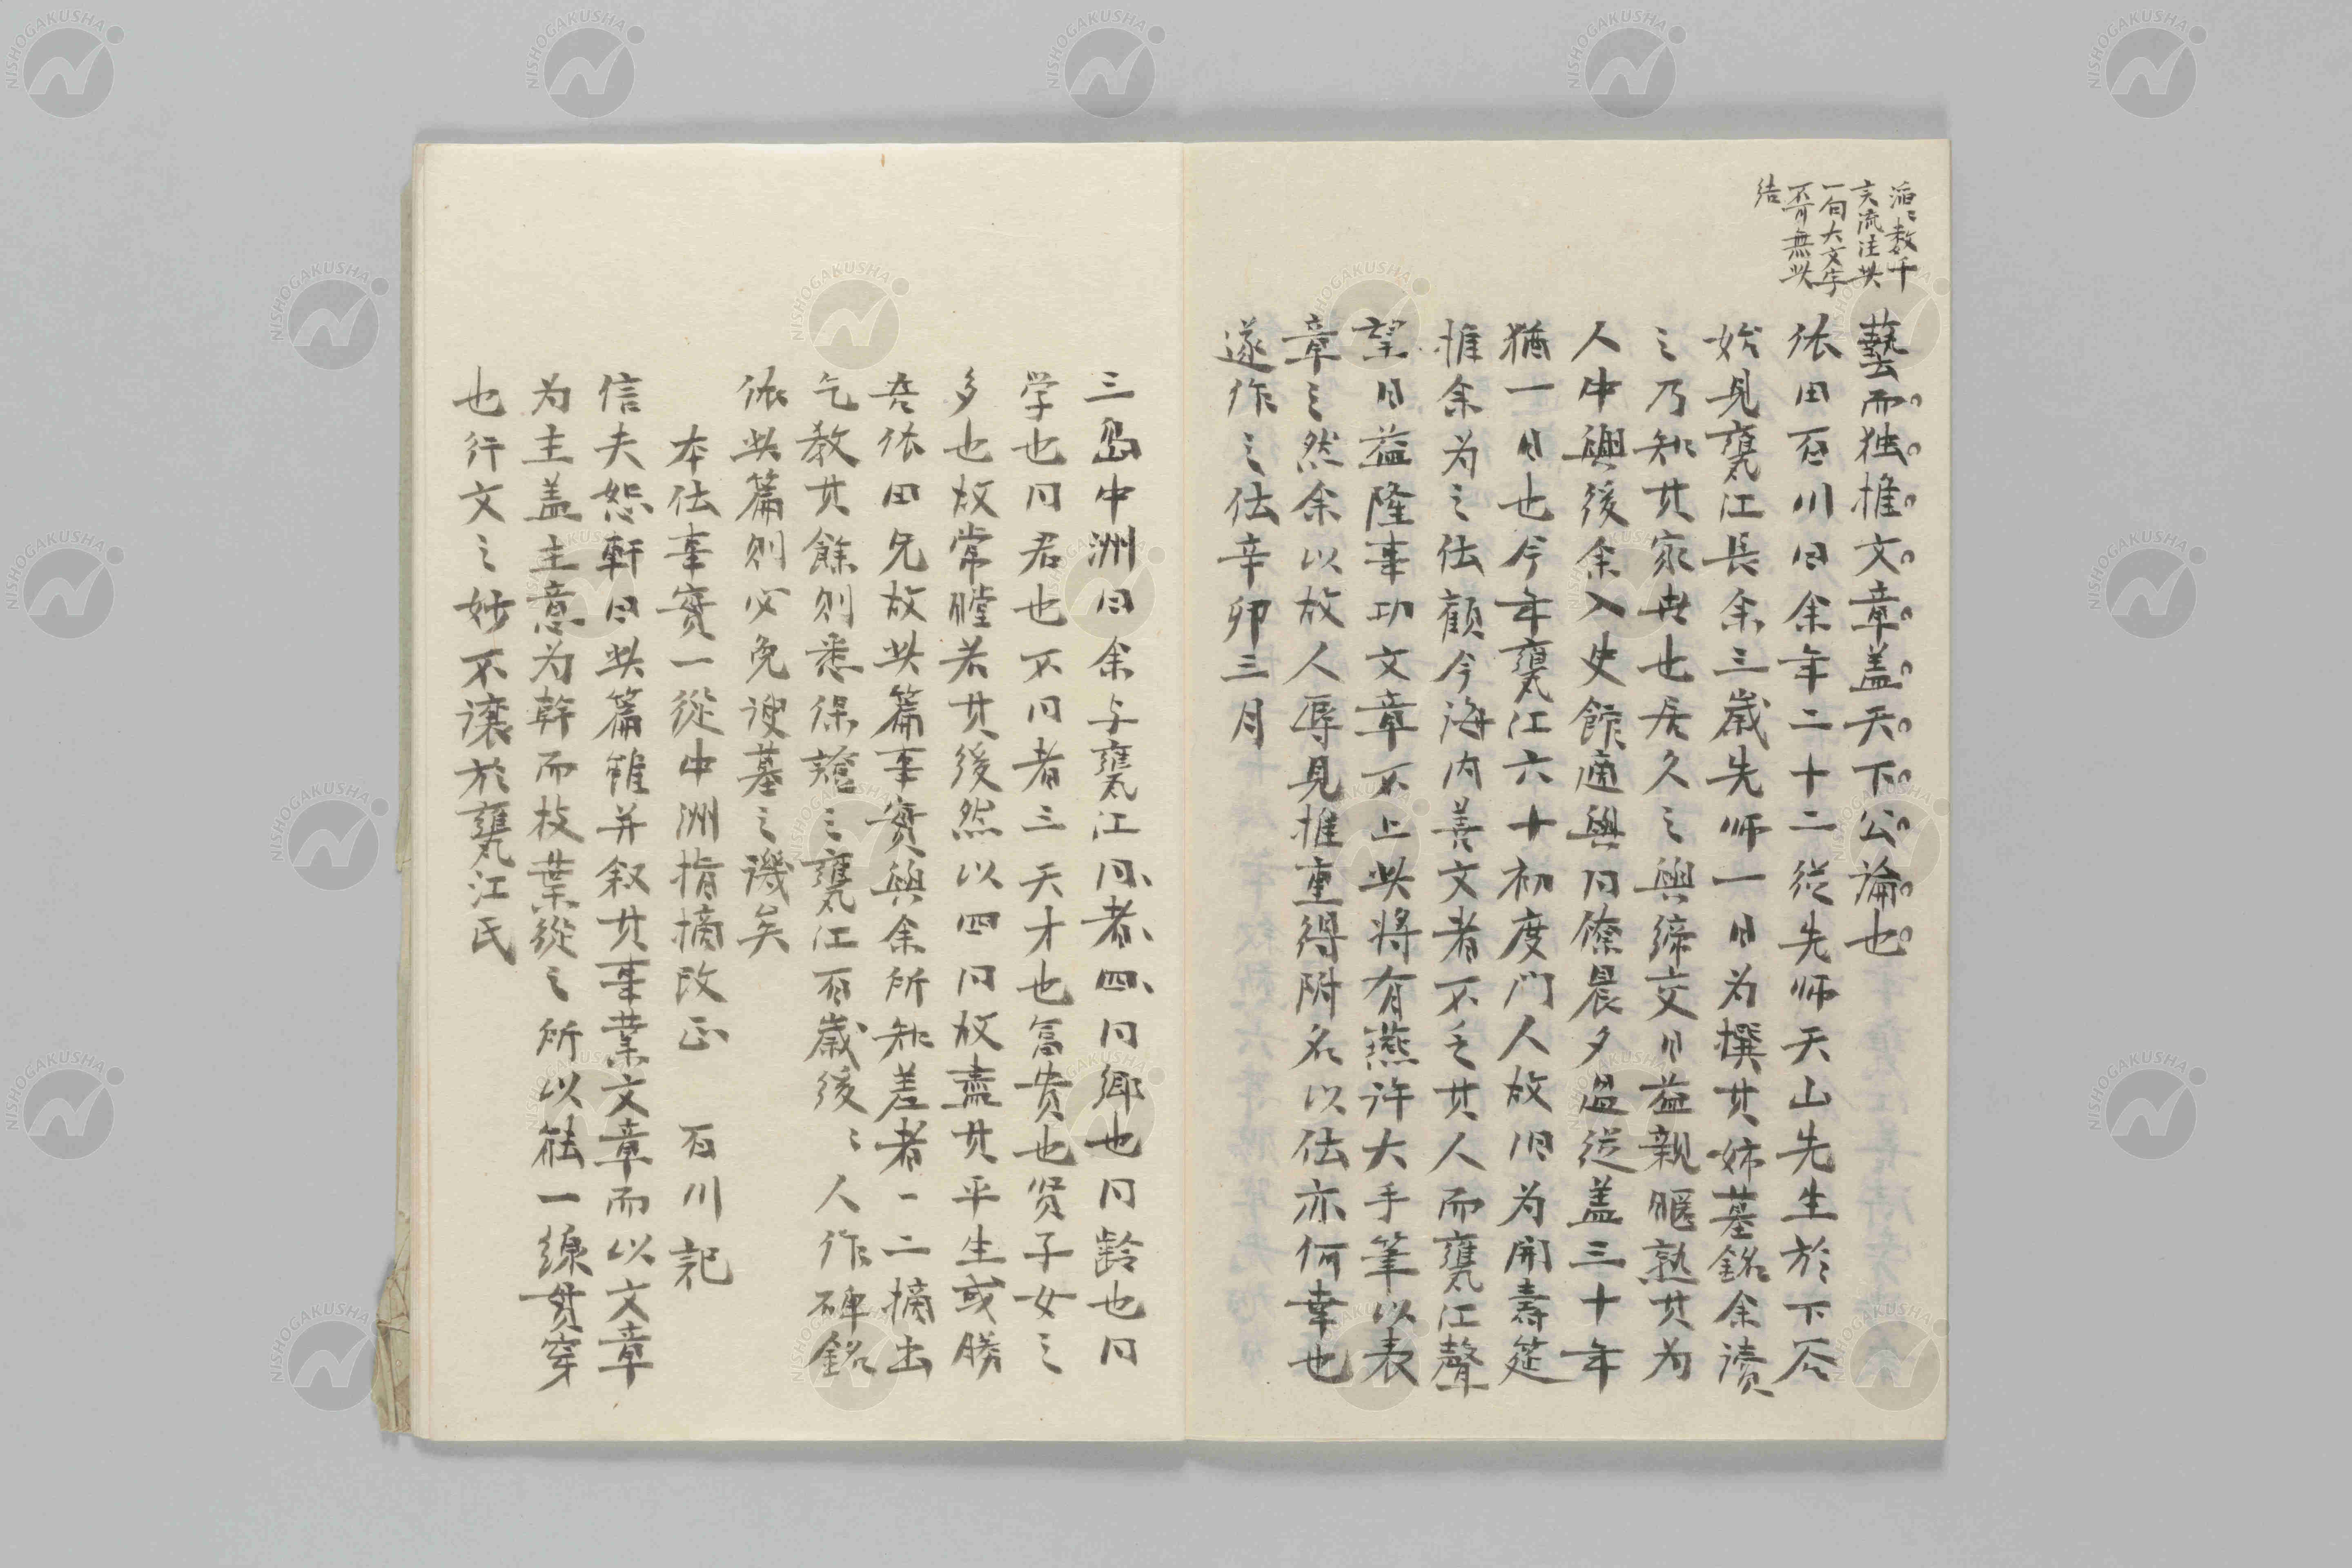 滔々数千
言流注此
一句大文字
不可無此
結
藝而独推文章盖天下公論也
依田百川曰余年二十二従先師天山先生於下谷
始見甕江長余三歳先師一日為撰其姉墓銘余読
之乃知其家世也居久之與締交日益親暱熟其為
人中興後余入史館適與同僚晨夕過従盖三十年
猶一日也今年甕江六十初度門人故旧為開壽筵
推余為之伝顧今海内善文者不乏其人而甕江聲
望日益隆事功文章不上此将有燕許大手筆以表
章之然余以故人辱見推重得附名以伝亦何幸也
遂作之伝辛卯三月
三島中洲曰余与甕江同者四同郷也同齢也同
学也同君也不同者三天才也富貴也賢子女之
多也故常瞠若其後然以四同故盡其平生或勝
吾依田兄故此篇事實與余所知差者一二摘出
乞教其餘則悉保證之甕江百歳後々人作碑銘
依此篇則必免諛墓之譏矣
本伝事実一従中洲指摘改正　百川記
信夫恕軒曰此篇雖并叙其事業文章而以文章
為主盖主意為幹而枝葉従之所以能一線貫穿
也行文之妙不譲於甕江氏